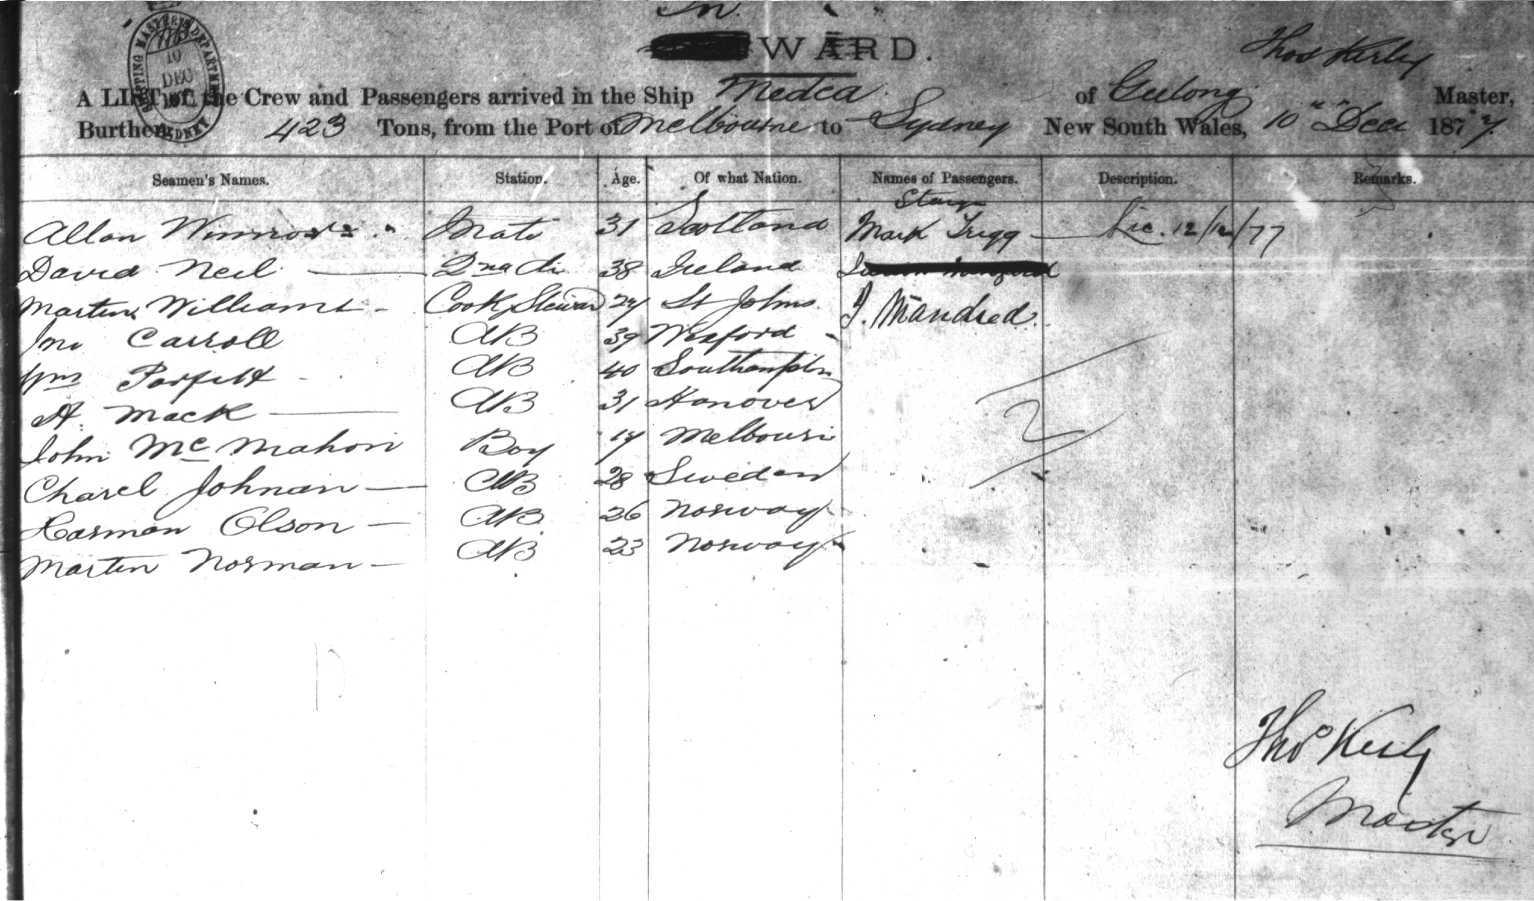 In
WARD.
SHIPPING MASTER'S DEPARTMENT
10
DEC
SYDNEY
A LIST of the Crew and Passengers arrived in the Ship Medea of Geelong Thos Kerby Master,
Burthen 423 Tons, from the Port of Melbourne to Sydney New South Wales, 10" Dec 1877
Seamen's Names. Station. Age. Of what Nation. Names of Passengers. Description. Remarks.
Allan Mate 31 Scotland Mark Trigg Lic. 12/12/77
David Neil 2nd do 38 Ireland
Martin Williams Cook Steward 27 St Johns Mandred
Jno Carroll AB 39 Wexford
Wm Parfitt AB 40 Southampton
A. Mack AB 31 Hanover
John McMahon Boy 17 Melbourn
Charel Johnan AB 28 Sweden
Harman Olson AB 26 Norway
Martin Norman AB 23 Norway
Thos Kerby
Master